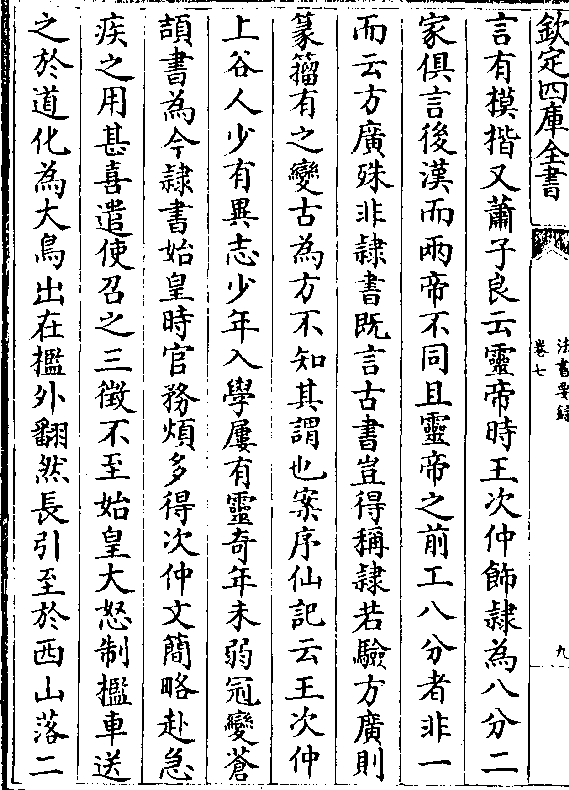 欽定四庫全書
法書要録
卷七
九
言有摸揩又蕭子良云靈帝時王次仲飾隷為八分二
家俱言後漢而兩帝不同且靈帝之前工八分者非一
而云方廣殊非隷書既言古書豈得稱隷若驗方廣則
篆籀有之變古為方不知其謂也案序仙記云王次仲
上谷人少有異志少年入學屢有靈奇年未弱冠變蒼
頡書為今隷書始皇時官務煩多得次仲文簡略赴急
疾之用甚喜遣使召之三徵不至始皇大怒制檻車送
之於道化為大鳥出在檻外翻然長引至於西山落二